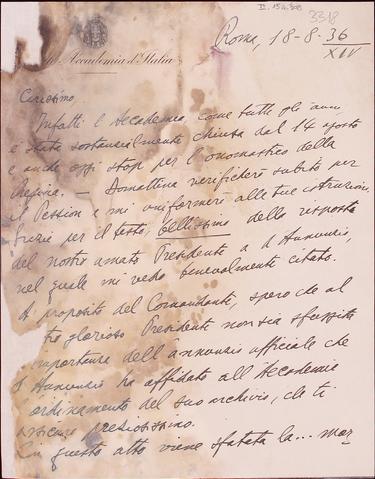 3318
R. Accademia d'Italia
Roma, 18-8-36
XIV
Carissimo,
Infatti l'Accademia, come tutti gli anni,
è stata sostanzialmente chiusa dal 14 agosto
e anche oggi stop per l'onomastico della
Regina. — Domattina verificherò subito per
il Pession e mi uniformerò alle tue istruzioni.
Grazie per il testo, bellissimo della risposta
del nostro amato Presidente a d'Annunzio,
nel quale mi vedo benevolmente citato.
A proposito del Comandante, spero che al
tuo glorioso Presidente non sia sfuggita
importanza dell'annunzio ufficiale che
d'Annunzio ha affidato all'Accademia
l'ordinamento del suo archivio, che ti
assicuro preziosissimo.
In questo atto viene sfatata la... mar